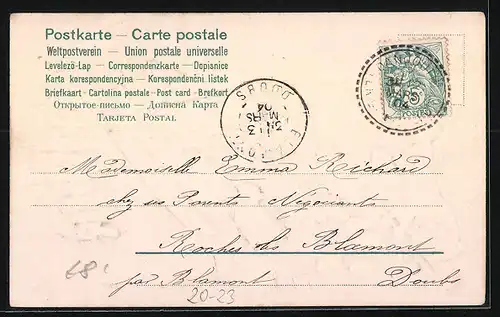 Postkarte — Carte postale
Weltpostverein — Union postale universelle
Levelező-Lap — Correspondenzkarte — Dopisnice
Karta korespondencyjna — Korespondenční listek
Briefkaart - Cartolina postale - Post card - Brefkort
Открытое письмо — Дописна Карта
Tarjeta Postal
DOUBS
3
MARS
04
MARS
04
5
Mademoiselle Emma Richard
chez ses Parents Négociants
Roches lès Blamont
par Blamont Doubs
68'
20-23